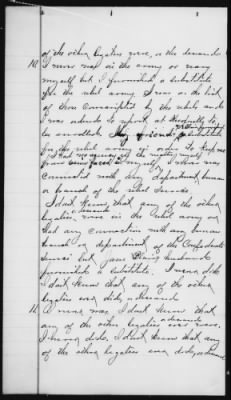 of the other legatees were, or the decedent
10. I never was in the army or navy
myself but I furnished a substitute
for the rebel army I was on the list
of those conscripted by the rebels and
I was ordered to report at
to be enrolled. My friends
for the rebel army in order to keep me
I had no
myself. I never was
connected with any department bureau
or branch of the rebel service.
I don't know that any of the other
legatees decedent was in the rebel army or
had any connection with any bureau
branch or department of the Confederate
service but Jane husband
furnished a substitute. I never did
I don't know that any of the other
legatees ever did, or decedent
11. I never was. I don't know that
any of the other legatees or decedent ever were.
I never did. I don't know that any
of the other legatees ever did, or decedent